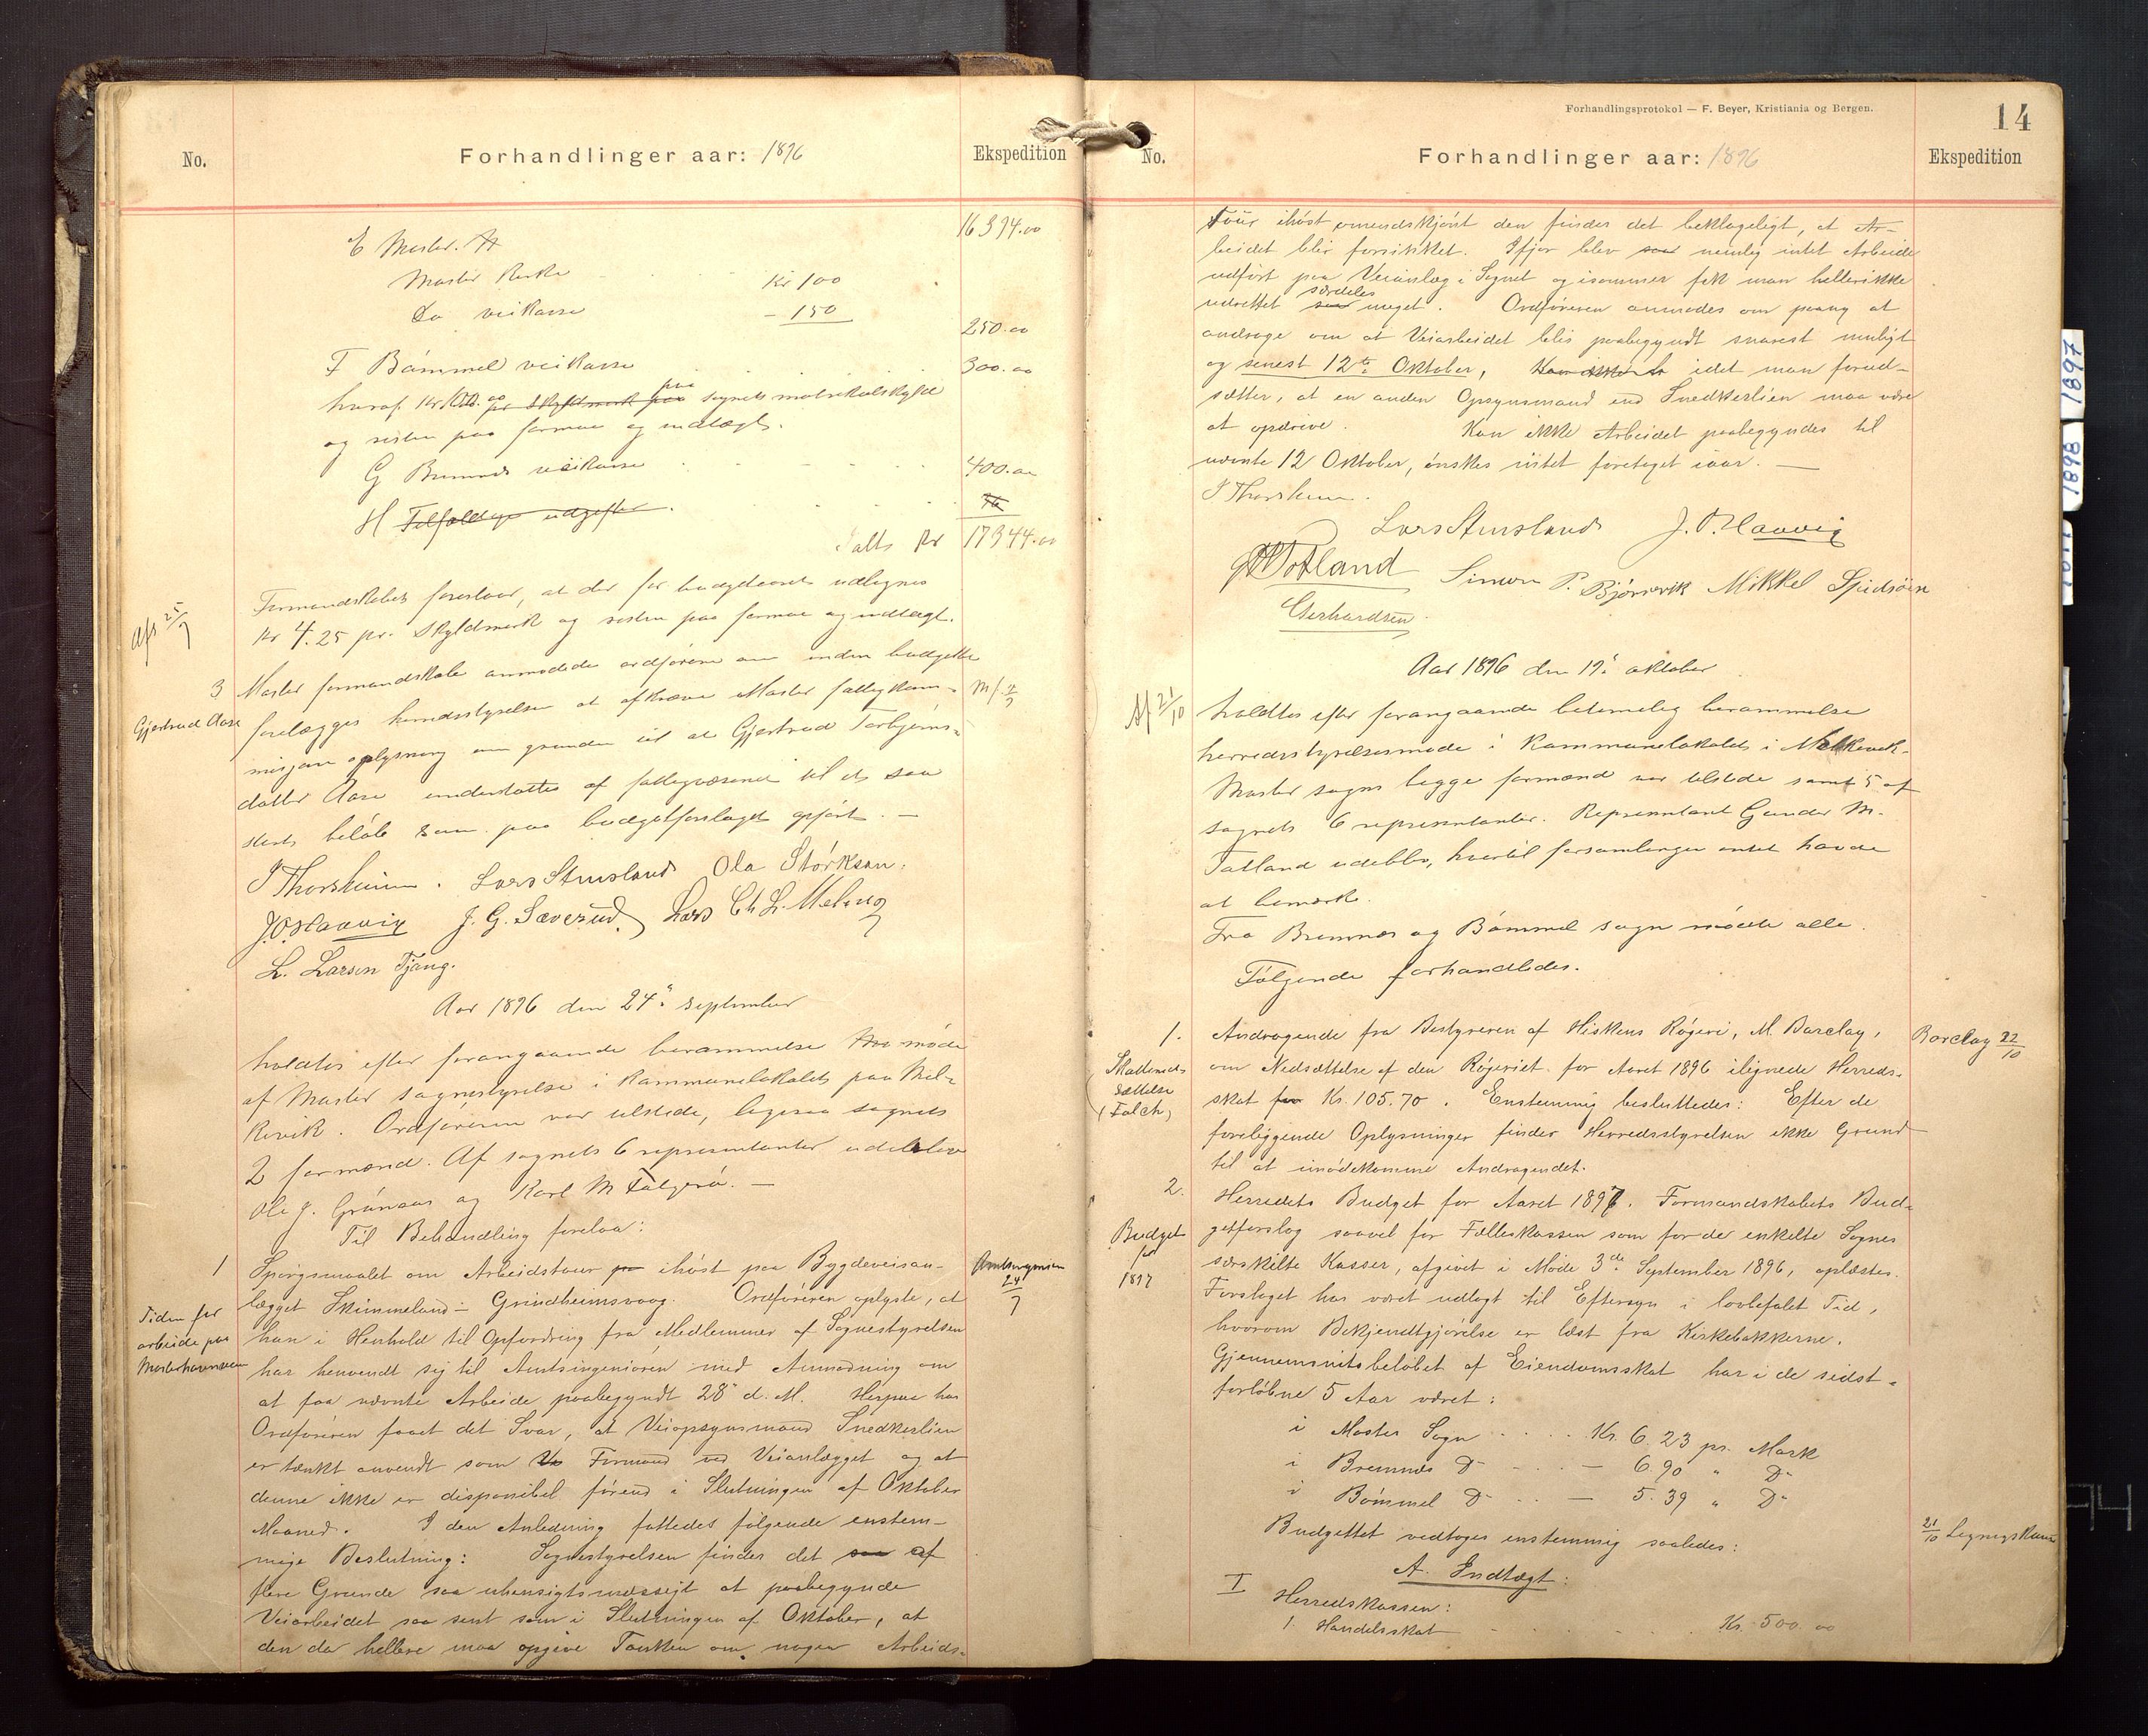 No.
Forhandlinger aar: 1896
Ekspedition
16394.00
E Moster.
Moster Kirke Kr 100
Do veikasse - 150
250.00
F Bömmel veikasse 300.00
og resten paa formue og indtægt.
G Bremnes veikasse 400.00
H Tilfældige udgifter.
Ialt Kr 17344.00
Formandskabet foreslaar, at der for budgetaaret udlignes
Kr 4.25 pr. Skyldmark og resten paa formue og indtægt.
3
Gjertrud Aase
Moster formandskab anmodede ordføreren om inden budgettet
forelægges herredsstyrelsen at afkræve Moster fattigkom-
misjon oplysning om grunden til at Gjertrud Torbjørns-
datter Aase understøttes af fattigvæsenet til et saa
stort beløb som paa budgetforslaget opført. —
I Thorsheim. Lars Stensland Ola Störksen.
J.O. Haavig J. G. Sæverud. Lars Ch L. Meling
L. Larsen Tjong.
Aar 1896 den 24' september
holdtes efter forangaaende berammelse møde
af Moster sognestyrelse i Kommunelokalet paa Mel-
kevik. Ordføreren var tilstede, ligesaa sognets
2 formænd. Af sognets 6 representanter udeblev
Ole J. Grönaas og Karl M Folgerö. —
Til Behandling forelaa:
1
Tiden for
arbeide paa
Mosterhavnveien
Spörgsmaalet om Arbeidstour ihöst paa Bygdeveisan-
lægget Skimmeland - Grindheimsvaag. Ordföreren oplyste, at
han i Henhold til Opfordring fra Medlemmer af Sognestyrelsen
har henvendt sig til Amtsingeniören med Anmodning om
at faa nævnte Arbeide paabegyndt 28' d. M. Herpaa har
Ordföreren faaet det Svar, at Veiopsynsmand Snedkerlien
er tænkt anvendt som Formand ved Veianlægget og at
denne ikke er disponibel förend i Slutningen af Oktober
Maaned. I den Anledning fattedes fölgende enstem-
mige Beslutning: Sognestyrelsen finder det af
flere Grunde saa uhensigtsmæssigt at paabegynde
Veiarbeidet saa sent som i Slutningen af Oktober, at
den da hellere maa opgive Tanken om nogen Arbeids-
Forhandlingsprotokol — F. Beyer, Kristiania og Bergen.
14
No.
Forhandlinger aar: 1896
Ekspedition
Tour ihöst omendskjönt den finder det beklageligt, at Ar-
beidet blir forsinket. Ifjor blev nemlig intet Arbeide
udfört paa Veianlæg i Sognet og isommer fik man hellerikke
udrettet særdeles meget. Ordföreren anmodes om paany at
andrage om at Veiarbeidet blir paabegyndt snarest muligt
og senest 12te Oktober, idet man forud-
sætter, at en anden Opsynsmand end Snedkerlien maa være
at opdrive. Kan ikke Arbeidet paabegyndes til
nævnte 12 Oktober, önskes intet foretaget iaar. —
I Thorsheim.
Lars Stensland J. O. Haavig
Simon P. Björnevik Mikkel Spidsöen
Gerhardsen.
Aar 1896 den 19' oktober
holdtes efter forangaaende betimelig berammelse
herredsstyrelsesmøde i Kommunelokalet i Melkevik.
Moster sogns begge formænd var tilstede samt 5 af
sognets 6 representanter. Representant Gunder M.
Totland udeblev, hvortil forsamlingen intet havde
at bemærke.
Fra Bremnes og Bömmel sogn mödte alle.
Fölgende forhandledes.
1.
Skattened-
sættelse
(Falch)
Andragende fra Bestyreren af Hiskens Rögeri, M. Barclay,
om Nedsættelse af den Rögeriet for Aaret 1896 ilignede Herreds-
skat Kr. 105.70. Enstemmig besluttedes: Efter de
foreliggende Oplysninger finder Herredsstyrelsen ikke Grund
til at imödekomme Andragendet.
Barclay 22/10
2.
Budget
for
1897
Herredets Budget for Aaret 1897. Formandskabets Bud-
getforslag saavel for Fælleskassen som for de enkelte Sognes
særskilte Kasser, afgivet i Möde 3de September 1896, oplæstes.
Forslaget har været udlagt til Eftersyn i lovbefalet Tid,
hvorom Bekjendtgjörelse er læst fra Kirkebakkerne.
Gjennemsnitsbelöbet af Eiendomsskat har i de sidst-
forlöbne 5 Aar været:
i Moster Sogn Kr. 6.23 pr. Mark
i Bremnes Do — 6.90 " Do
i Bömmel Do — 5.39 " Do
Budgettet vedtoges enstemmig saaledes:
21/10 Ligningskom
A. Indtægt:
I Herredskassen:
1. Handelsskat Kr. 500.00
1897
1898